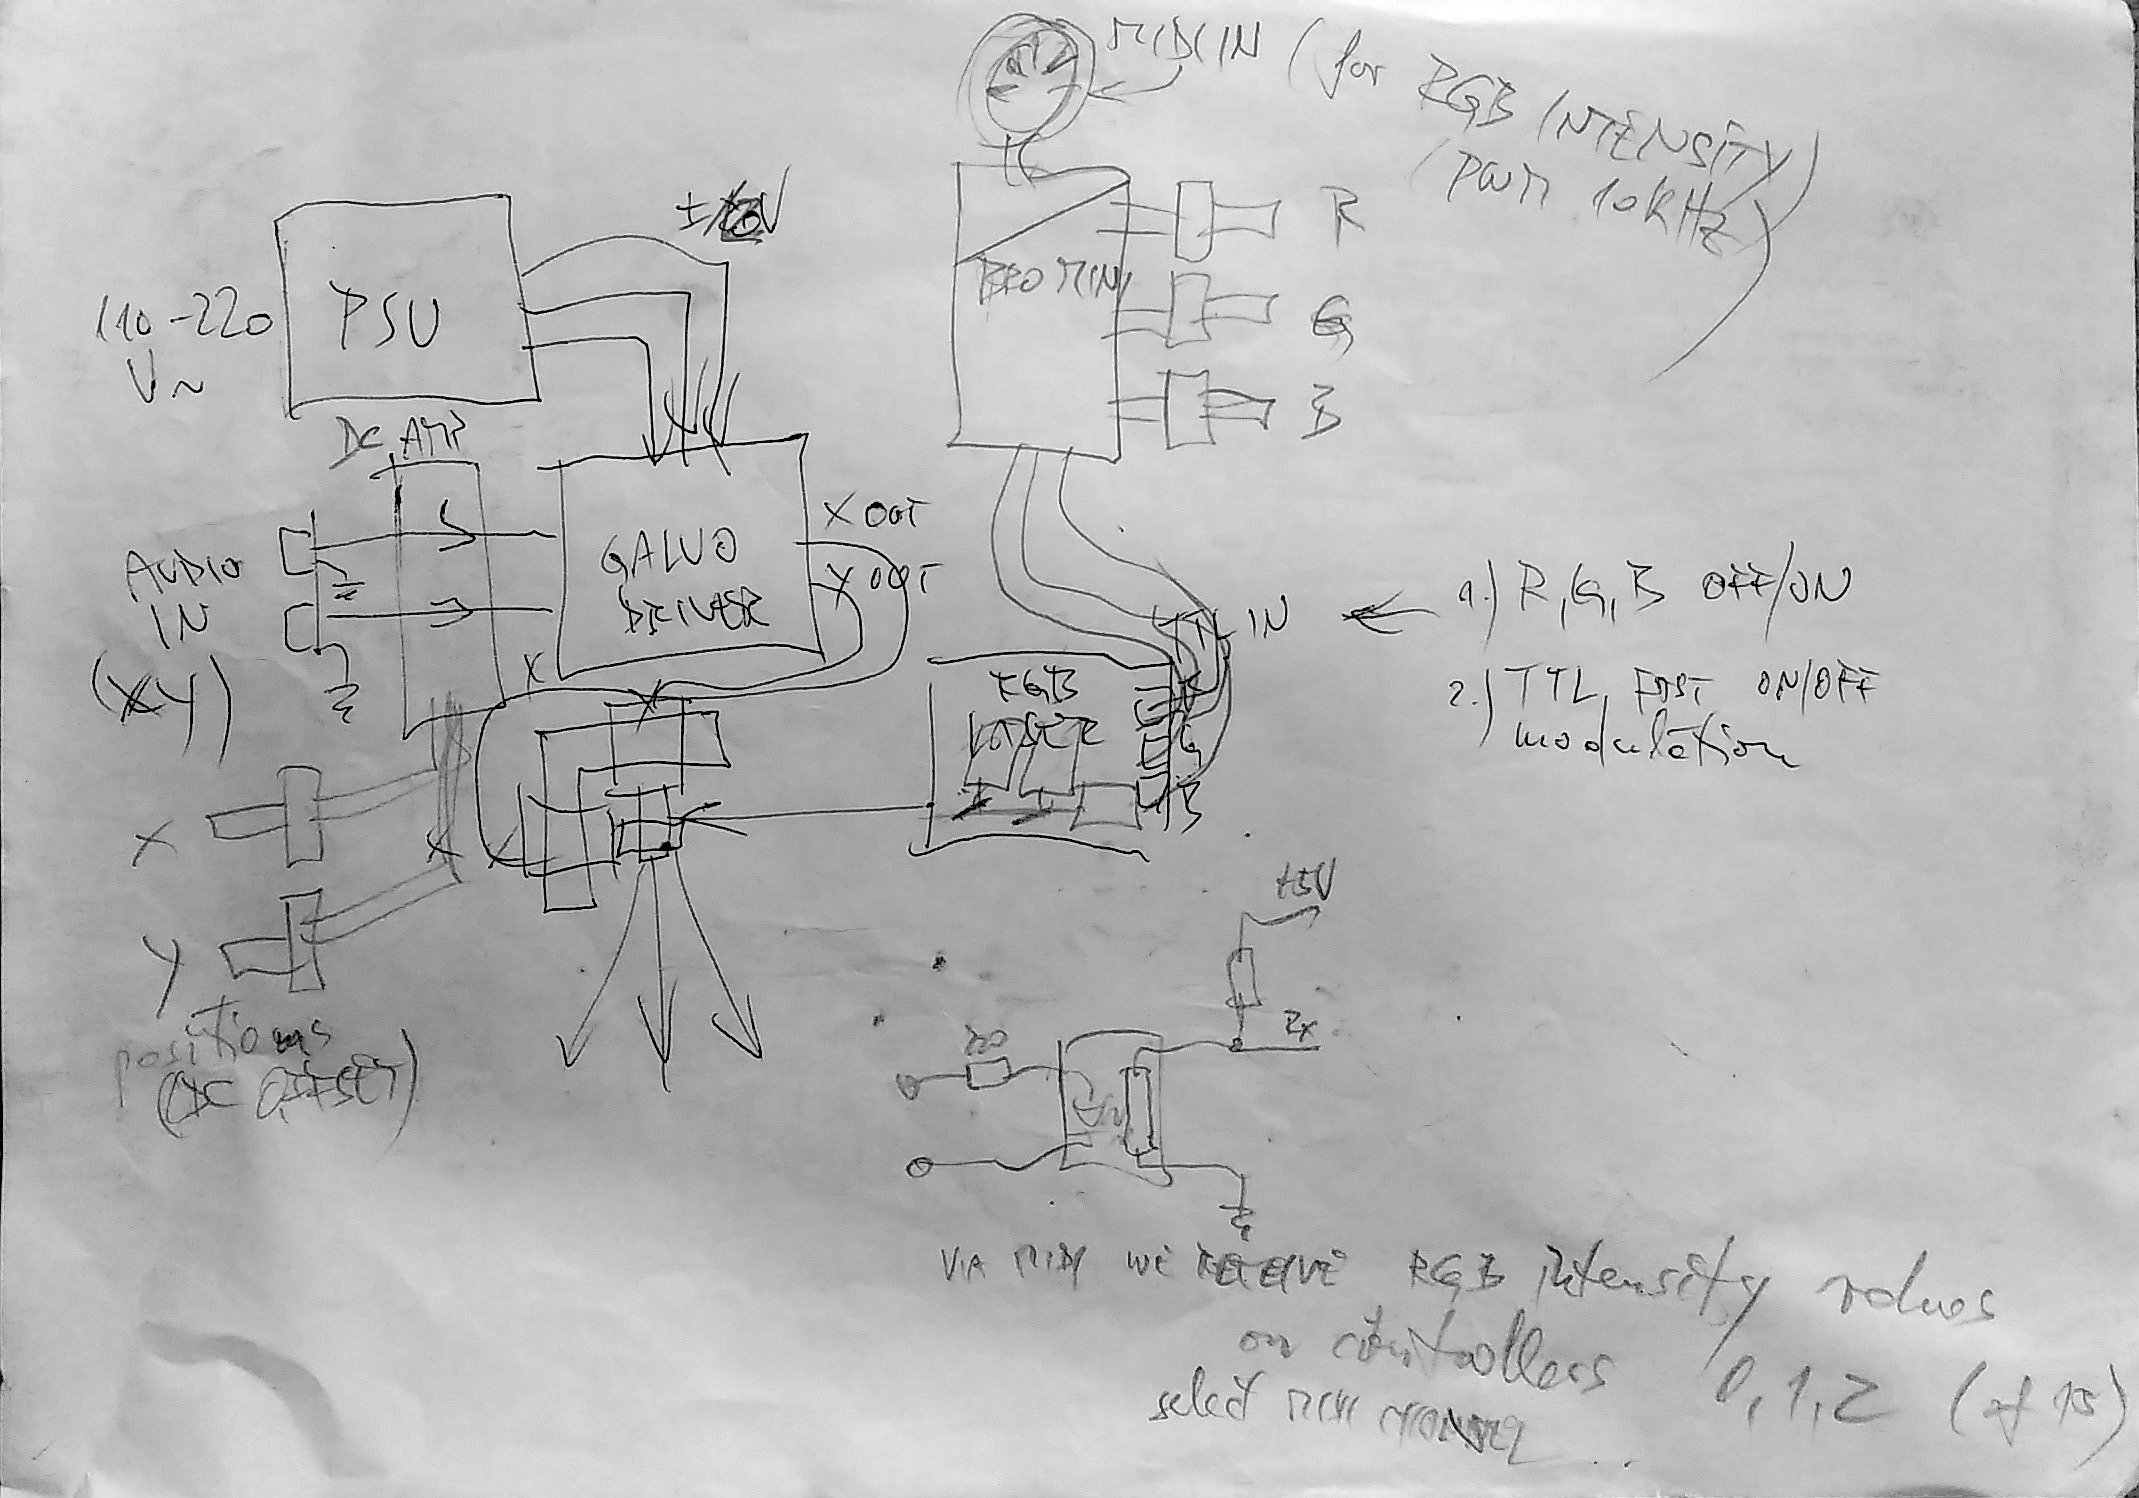 MIDI IN (for RGB INTENSITY)
(PWM 10kHz)
PSU
110-220
V~
R
G
B
PRO MINI
DC AMP
AUDIO
IN
(XY)
GALVO
DRIVER
X OUT
Y OUT
X
TTL IN
1.) R,G,B OFF/ON
2.) TTL FAST ON/OFF
modulation
RGB
LASER
R
G
B
X
Y
positions
(DC OFFSET)
+5V
220
Rx
VIA MIDI WE RECEIVE RGB intensity values
on controllers 0,1,2 (of 15)
select MIDI CHANNEL ...